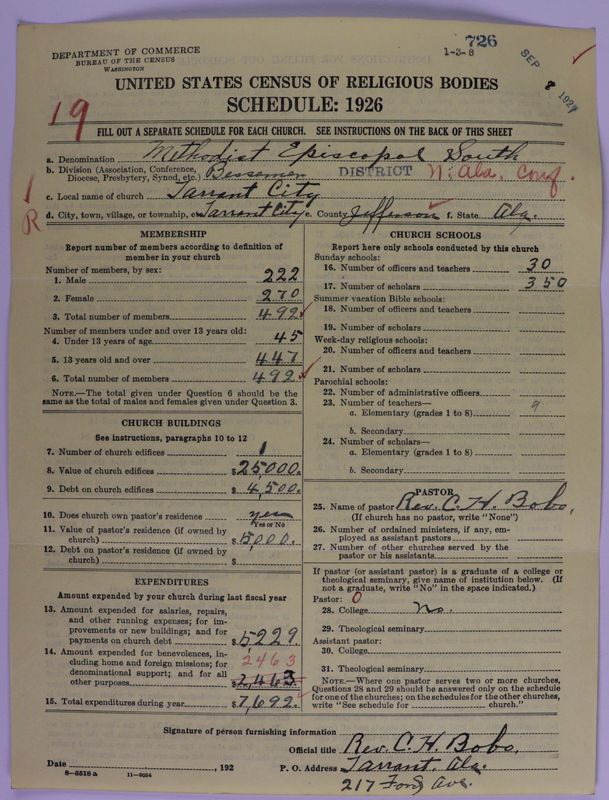 726
1-3-8
SEP 8 1927
DEPARTMENT OF COMMERCE
BUREAU OF THE CENSUS
WASHINGTON
UNITED STATES CENSUS OF RELIGIOUS BODIES
SCHEDULE: 1926
19
FILL OUT A SEPARATE SCHEDULE FOR EACH CHURCH. SEE INSTRUCTIONS ON THE BACK OF THIS SHEET
a. Denomination Methodist Episcopal South
b. Division (Association, Conference, Diocese, Presbytery, Synod, etc.) Bessemer DISTRICT N. Ala. Conf.
c. Local name of church Tarrant City
R
d. City, town, village, or township, etc. Tarrant City e. County Jefferson f. State Ala.
MEMBERSHIP
Report number of members according to definition of
member in your church
Number of members, by sex:
1. Male 222
2. Female 270
3. Total number of members 492
Number of members under and over 13 years old:
4. Under 13 years of age 45
5. 13 years old and over 447
6. Total number of members 492
NOTE.—The total given under Question 6 should be the
same as the total of males and females given under Question 3.
CHURCH BUILDINGS
See instructions, paragraphs 10 to 12
7. Number of church edifices 1
8. Value of church edifices $25000.
9. Debt on church edifices $4,500.
10. Does church own pastor's residence yes
Yes or No
11. Value of pastor's residence (if owned by
church) $5000.
12. Debt on pastor's residence (if owned by
church) $
EXPENDITURES
Amount expended by your church during last fiscal year
13. Amount expended for salaries, repairs,
and other running expenses; for im-
provements or new buildings; and for
payments on church debt $5,229.
14. Amount expended for benevolences, in-
cluding home and foreign missions; for
denominational support; and for all
other purposes 2463 $2,463.
15. Total expenditures during year $7,692.
CHURCH SCHOOLS
Report here only schools conducted by this church
Sunday schools:
16. Number of officers and teachers 30
17. Number of scholars 350
Summer vacation Bible schools:
18. Number of officers and teachers
19. Number of scholars
Week-day religious schools:
20. Number of officers and teachers
21. Number of scholars
Parochial schools:
22. Number of administrative officers
23. Number of teachers—
a. Elementary (grades 1 to 8) 9
b. Secondary
24. Number of scholars—
a. Elementary (grades 1 to 8)
b. Secondary
PASTOR
25. Name of pastor Rev. C. H. Bobo.
(If church has no pastor, write "None")
26. Number of ordained ministers, if any, em-
ployed as assistant pastors
27. Number of other churches served by the
pastor or his assistants
If pastor (or assistant pastor) is a graduate of a college or
theological seminary, give name of institution below. (If
not a graduate, write "No" in the space indicated.)
Pastor: 0
28. College No.
29. Theological seminary
Assistant pastor:
30. College
31. Theological seminary
NOTE.—Where one pastor serves two or more churches,
Questions 28 and 29 should be answered only on the schedule
for one of the churches; on the schedules for the other churches,
write "See schedule for church."
Signature of person furnishing information
Official title Rev. C. H. Bobo.
Date , 192 P. O. Address Tarrant, Ala.
8-5518 a 11-9034 217 Ford Ave.